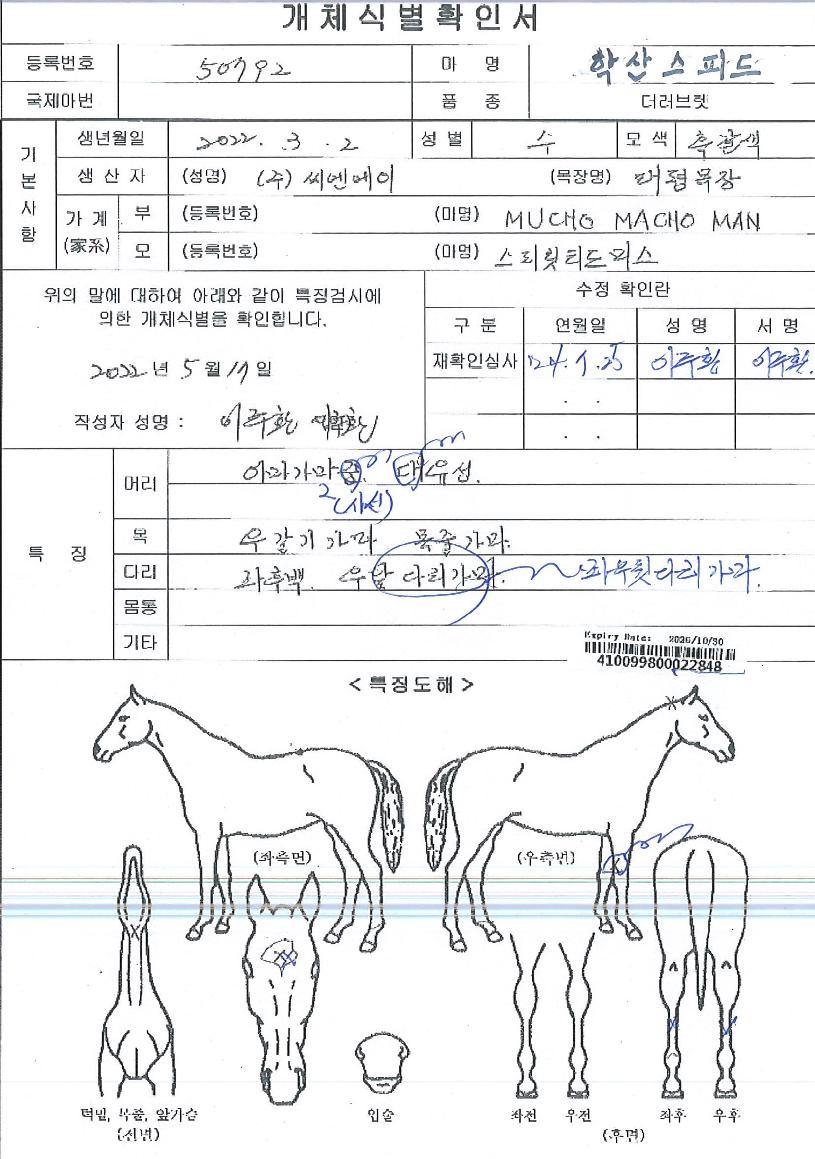 개체식별확인서
등록번호 50792 마 명 학산스피드
국제마번 품 종 더러브렛
기본사항
생년월일 2022. 3. 2 성별 수 모색 흑갈색
생산자 (성명) (주)씨엔에이 (목장명) 태평목장
가계(家系) 부 (등록번호) (마명) MUCHO MACHO MAN
모 (등록번호) (마명) 스피릿티드피스
위의 말에 대하여 아래와 같이 특징검시에
의한 개체식별을 확인합니다.
2022년 5월 17일
작성자 성명 : 이주환
수정 확인란
구분 연월일 성명 서명
재확인심사 '24. 1. 25 이주환 이주환
. .
. .
특 징
머리 이마가마 유성.
2(사선)
목 우갈기가마 목줄가마.
다리 좌후백. 우앞다리가마. 좌우뒷다리가마.
몸통
기타
Expiry Date: 2026/10/30
410099800022848
< 특징도해 >
(좌측면) (우측면)
턱밑, 목줄, 앞가슴 입술 좌전 우전 좌후 우후
(전면) (후면)